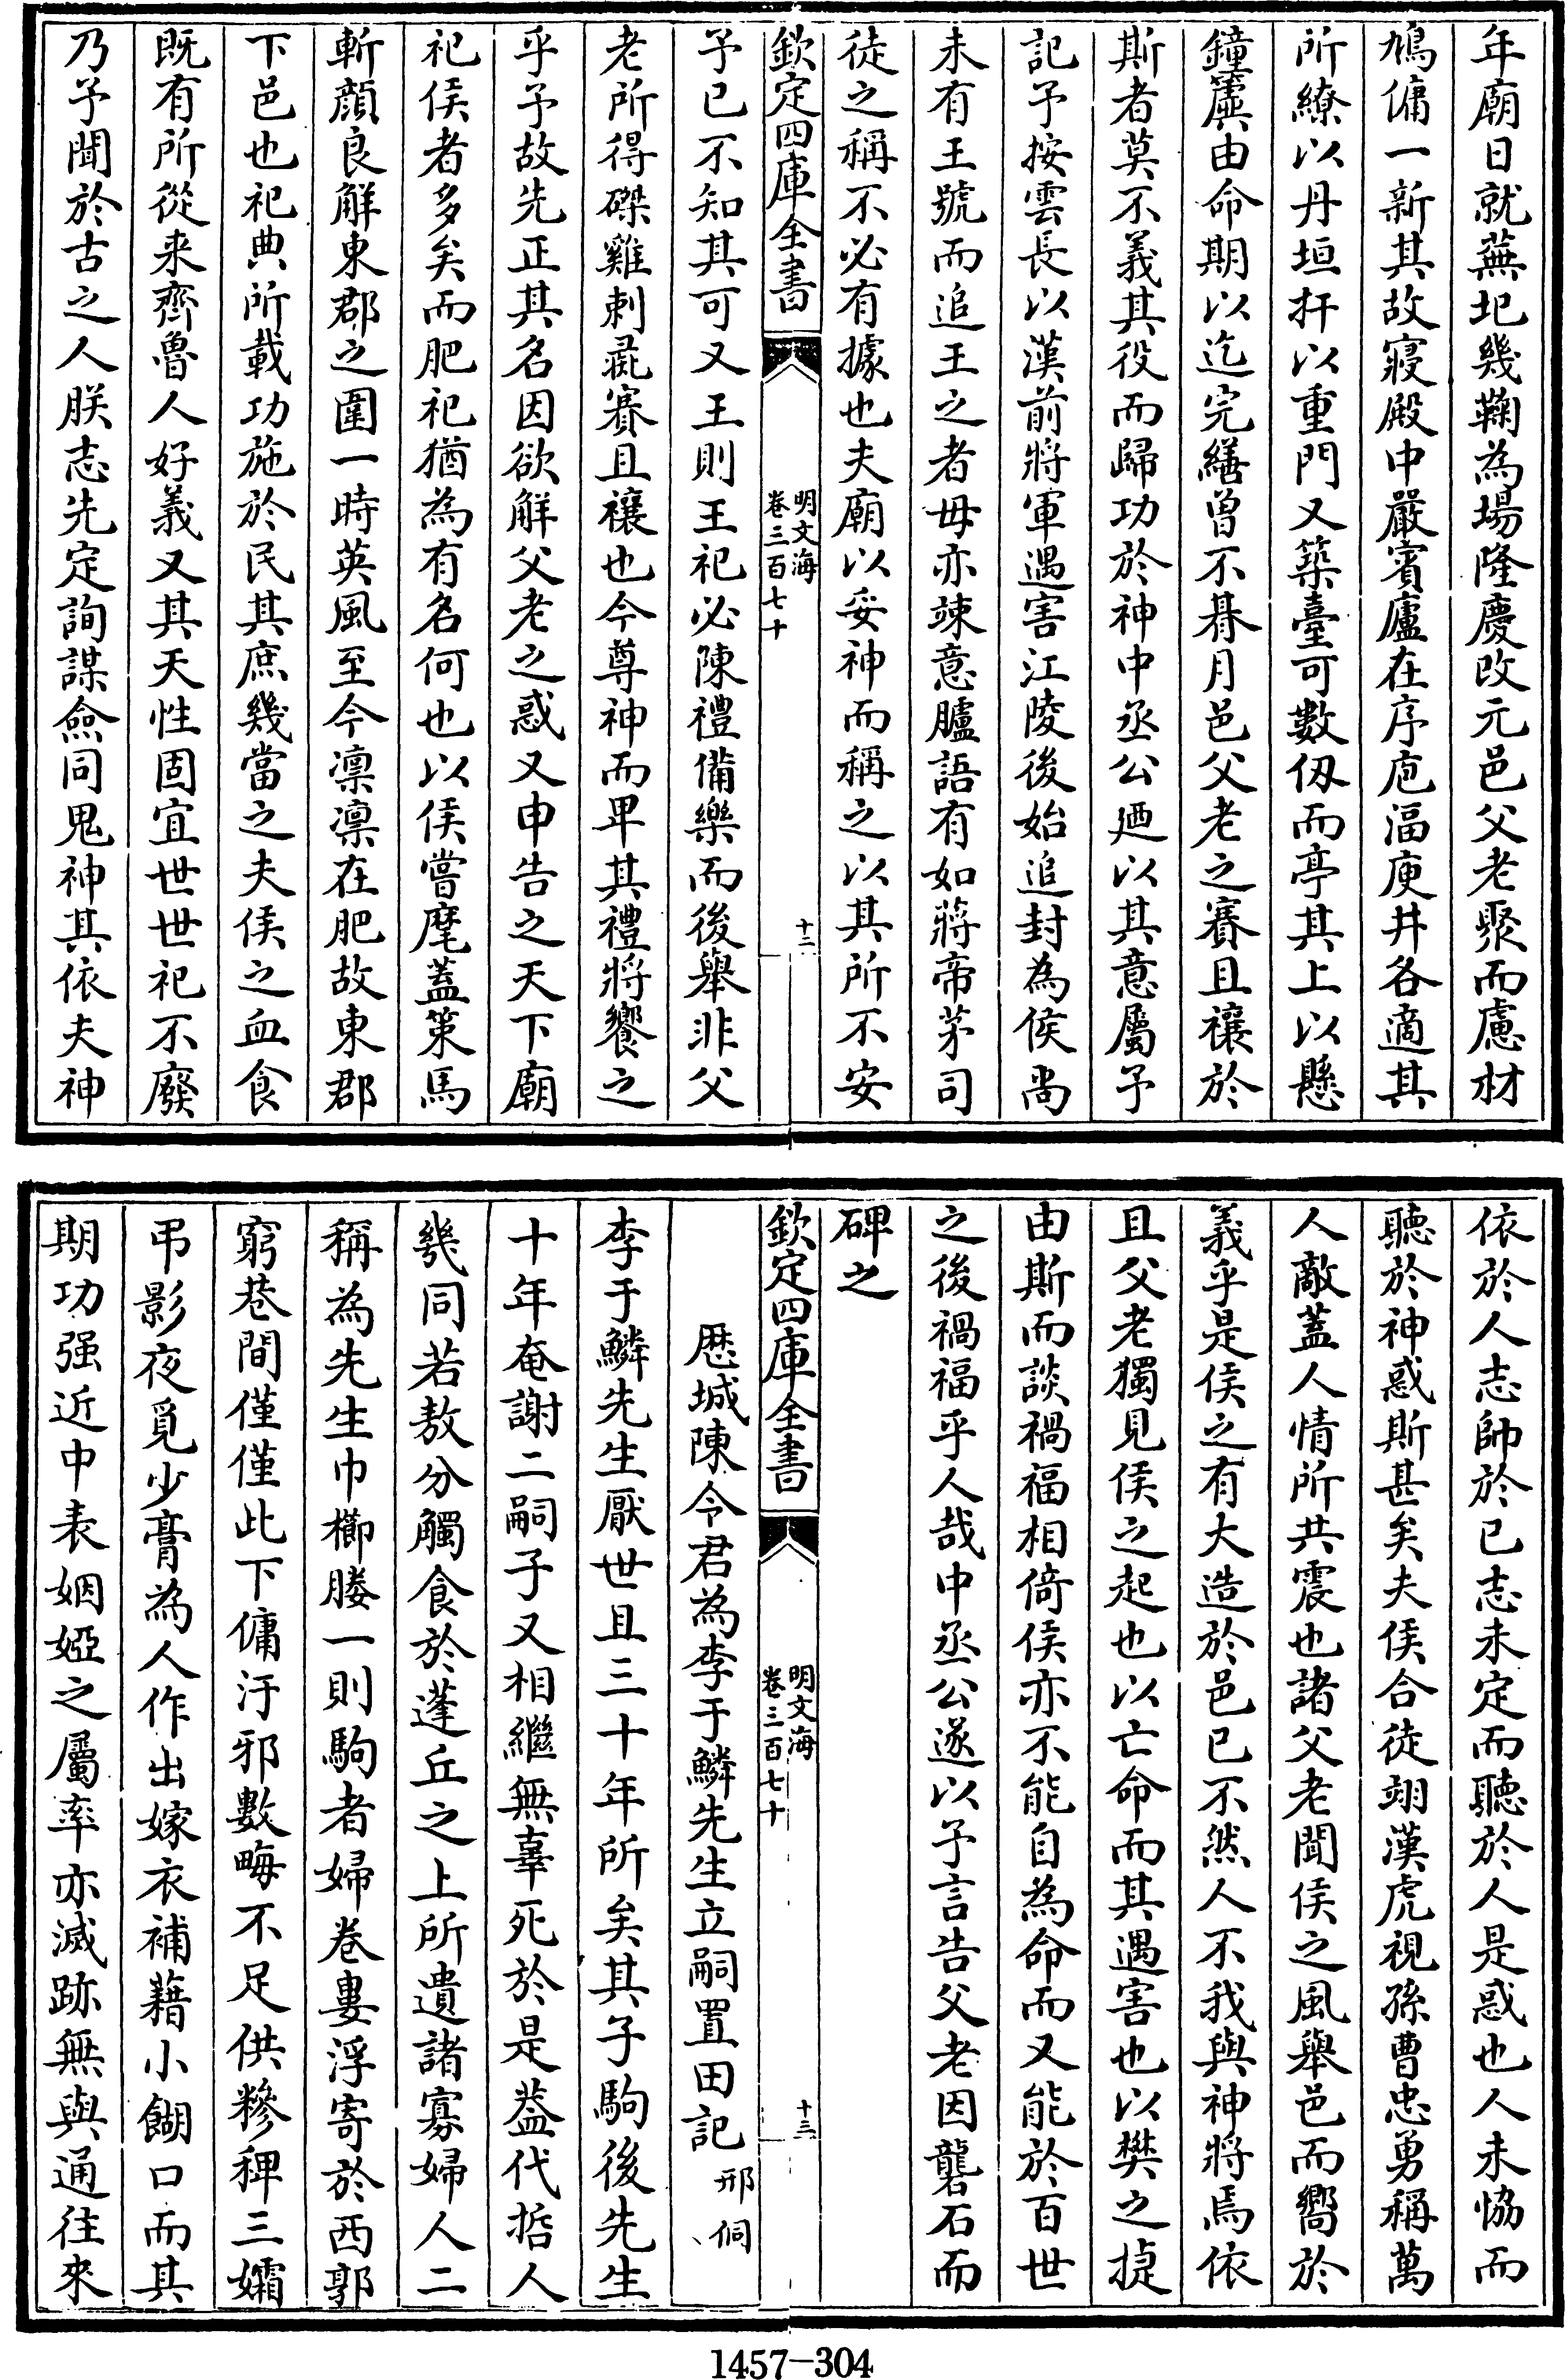 年廟日就蕪圮幾鞠為場隆慶改元邑父老聚而慮材
鳩傭一新其故寢殿中嚴賓廬在序庖湢庾井各適其
所繚以丹垣扞以重門又築臺可數仭而亭其上以懸
鐘簴由命期以迄完繕曾不朞月邑父老之賽且禳於
斯者莫不義其役而歸功於神中丞公廼以其意屬予
記予按雲長以漢前將軍遇害江陵後始追封為侯尚
未有王號而追王之者毋亦竦意臚語有如蔣帝茅司
徒之稱不必有據也夫廟以妥神而稱之以其所不安
欽定四庫全書
明文海
卷三百七十
十二
予已不知其可又王則王祀必陳禮備樂而後舉非父
老所得磔雞刺彘賽且禳也今尊神而卑其禮將饗之
乎予故先正其名因欲解父老之惑又申告之天下廟
祀侯者多矣而肥祀猶為有名何也以侯嘗麾蓋策馬
斬顔良解東郡之圍一時英風至今凛凛在肥故東郡
下邑也祀典所載功施於民其庶幾當之夫侯之血食
既有所從来齊魯人好義又其天性固宜世世祀不廢
乃予聞於古之人朕志先定詢謀僉同鬼神其依夫神
依於人志帥於已志未定而聽於人是惑也人未恊而
聽於神惑斯甚矣夫侯合徒翊漢虎視孫曹忠勇稱萬
人敵蓋人情所共震也諸父老聞侯之風舉邑而嚮於
義乎是侯之有大造於邑已不然人不我與神將焉依
且父老獨見侯之起也以亡命而其遇害也以樊之捷
由斯而談禍福相倚侯亦不能自為命而又能於百世
之後禍福乎人哉中丞公遂以予言告父老因礱石而
碑之
欽定四庫全書
明文海
卷三百七十
十三
歴城陳令君為李于鱗先生立嗣置田記 邢侗
李于鱗先生厭世且三十年所矣其子駒後先生
十年奄謝二嗣子又相繼無辜死於是葢代哲人
幾同若敖分觸食於蓬丘之上所遺諸寡婦人二
稱為先生巾櫛媵一則駒者婦卷婁浮寄於西郭
窮巷間僅僅此下傭汙邪數畮不足供糝稗三孀
弔影夜覓少膏為人作出嫁衣補藉小餬口而其
期功强近中表姻婭之屬率亦滅跡無與通往來
1457-304